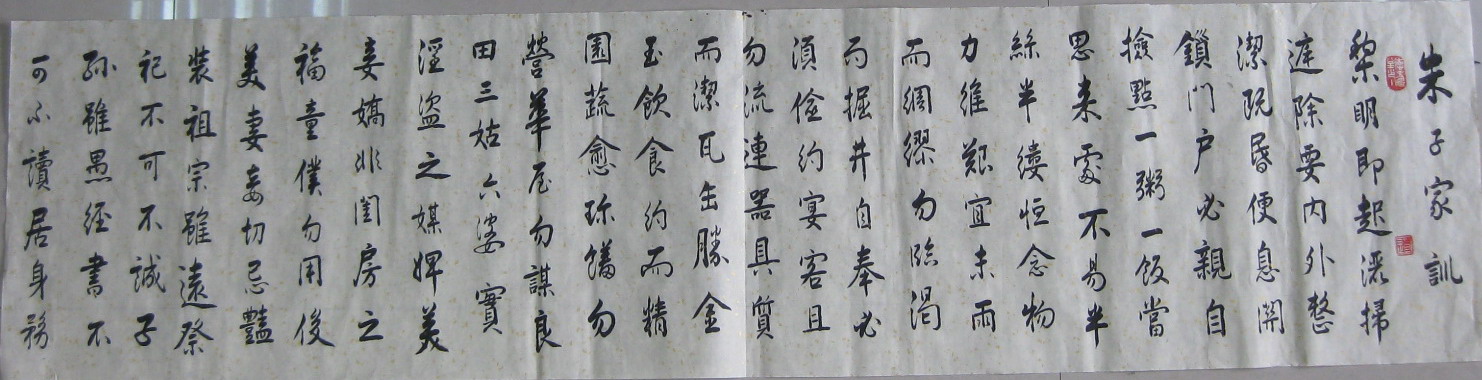 朱子家訓
黎明即起灑掃
庭除要內外整
潔既昏便息關
鎖門户必親自
撿點一粥一飯當
思来處不易半
絲半縷恒念物
力維艱宜未雨
而綢繆勿臨渴
而掘井自奉必
須儉約宴客且
勿流連器具質
而潔瓦缶勝金
玉飲食約而精
園蔬愈珎饈勿
營華屋勿謀良
田三姑六婆實
淫盗之媒婢美
妾嬌非閨房之
福童僕勿用俊
美妻妾切忌豔
裝祖宗雖遠祭
祀不可不誠子
孫雖愚經書不
可不讀居身務